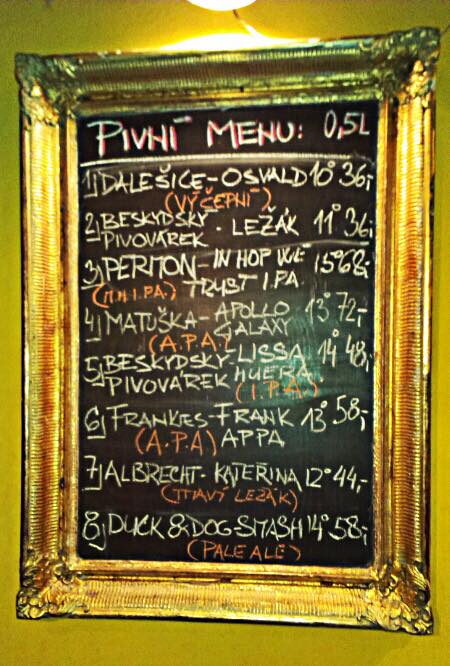 PIVNÍ MENU: 0,5L
1) DALEŠICE-OSVALD 10° 36,-
(VÝČEPNÍ)
2) BESKYDSKÝ PIVOVÁREK - LEŽÁK 11° 36,-
3) PERMON - IN HOP WE TRYST I.P.A. 15° 68,-
(I.P.A.)
4) MATUŠKA - APOLLO GALAXY 13° 72,-
(A.P.A.)
5) BESKYDSKÝ PIVOVÁREK - LISSA HUERA 14° 48,-
(I.P.A.)
6) FRANKIES - FRANK APPA 13° 58,-
(A.P.A)
7) ALBRECHT - KATEŘINA 12° 44,-
(TMAVÝ LEŽÁK)
8) DUCK & DOG - SMASH 14° 58,-
(PALE ALE)